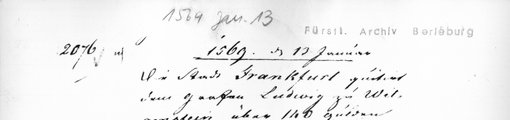 1569 Jan. 13
Fürstl. Archiv Berleburg
2076
1569. d 13 Januar
Die Stadt Frankfurt quitirt
dem Grafen Ludwig zu Wit-
genstein über 140 Gulden